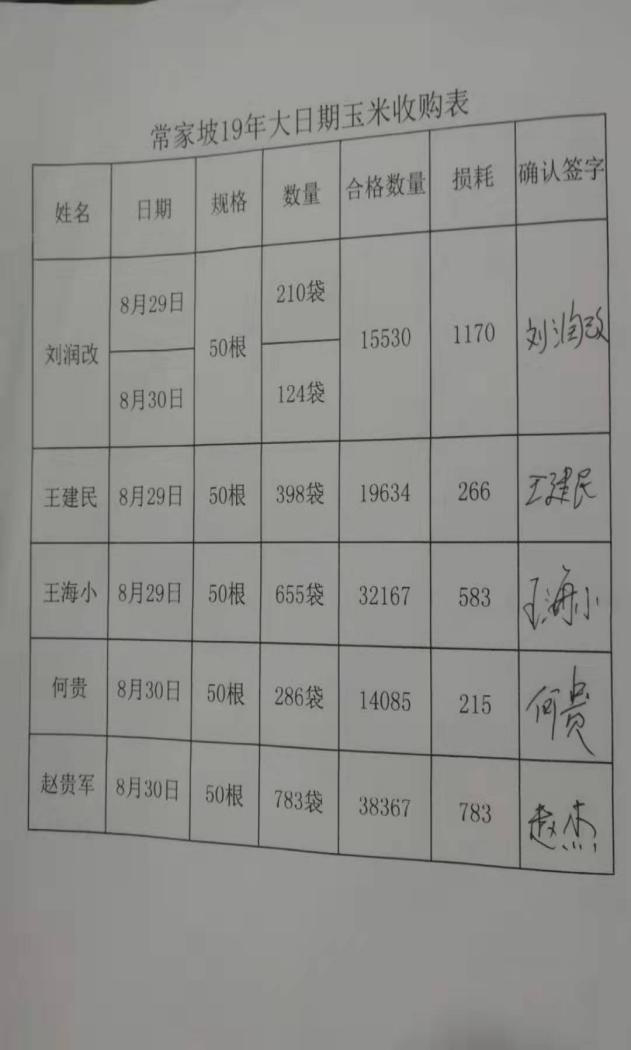 常家坡19年大日期玉米收购表
姓名 日期 规格 数量 合格数量 损耗 确认签字
刘润改 8月29日 50根 210袋 15530 1170 刘润改
8月30日 124袋
王建民 8月29日 50根 398袋 19634 266 王建民
王海小 8月29日 50根 655袋 32167 583 王海小
何贵 8月30日 50根 286袋 14085 215 何贵
赵贵军 8月30日 50根 783袋 38367 783 赵杰